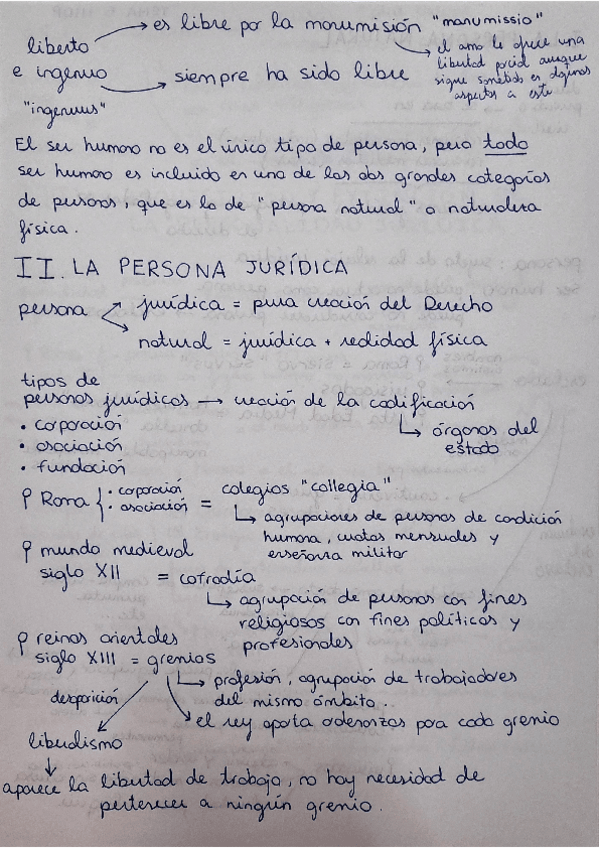 liberto → es libre por la manumisión "manumissio"
↳ el amo le ofrece una
libertad parcial aunque
sigue sometido en algunos
aspectos a este
e ingenuo → siempre ha sido libre
"ingenuus"
El ser humano no es el único tipo de persona, pero todo
ser humano es incluido en una de las dos grandes categorías
de personas, que es la de "persona natural" o naturaleza
física.
II. LA PERSONA JURÍDICA
persona
jurídica = pura creación del Derecho
natural = jurídica + realidad física
tipos de
personas jurídicas → creación de la codificación
↳ órganos del
estado
• corporación
• asociación
• fundación
Roma { • corporación
• asociación = colegios "collegia"
↳ agrupaciones de personas de condición
humana, cuotas mensuales y
enseñanza militar
mundo medieval
siglo XII = cofradía
↳ agrupación de personas con fines
religiosos con fines políticos y
profesionales
reinos orientales
siglo XIII = gremios
↳ profesión, agrupación de trabajadores
del mismo ámbito.
el rey aporta ordenanzas para cada gremio
desaparición
liberalismo
aparece la libertad de trabajo, no hay necesidad de
pertenecer a ningún gremio.